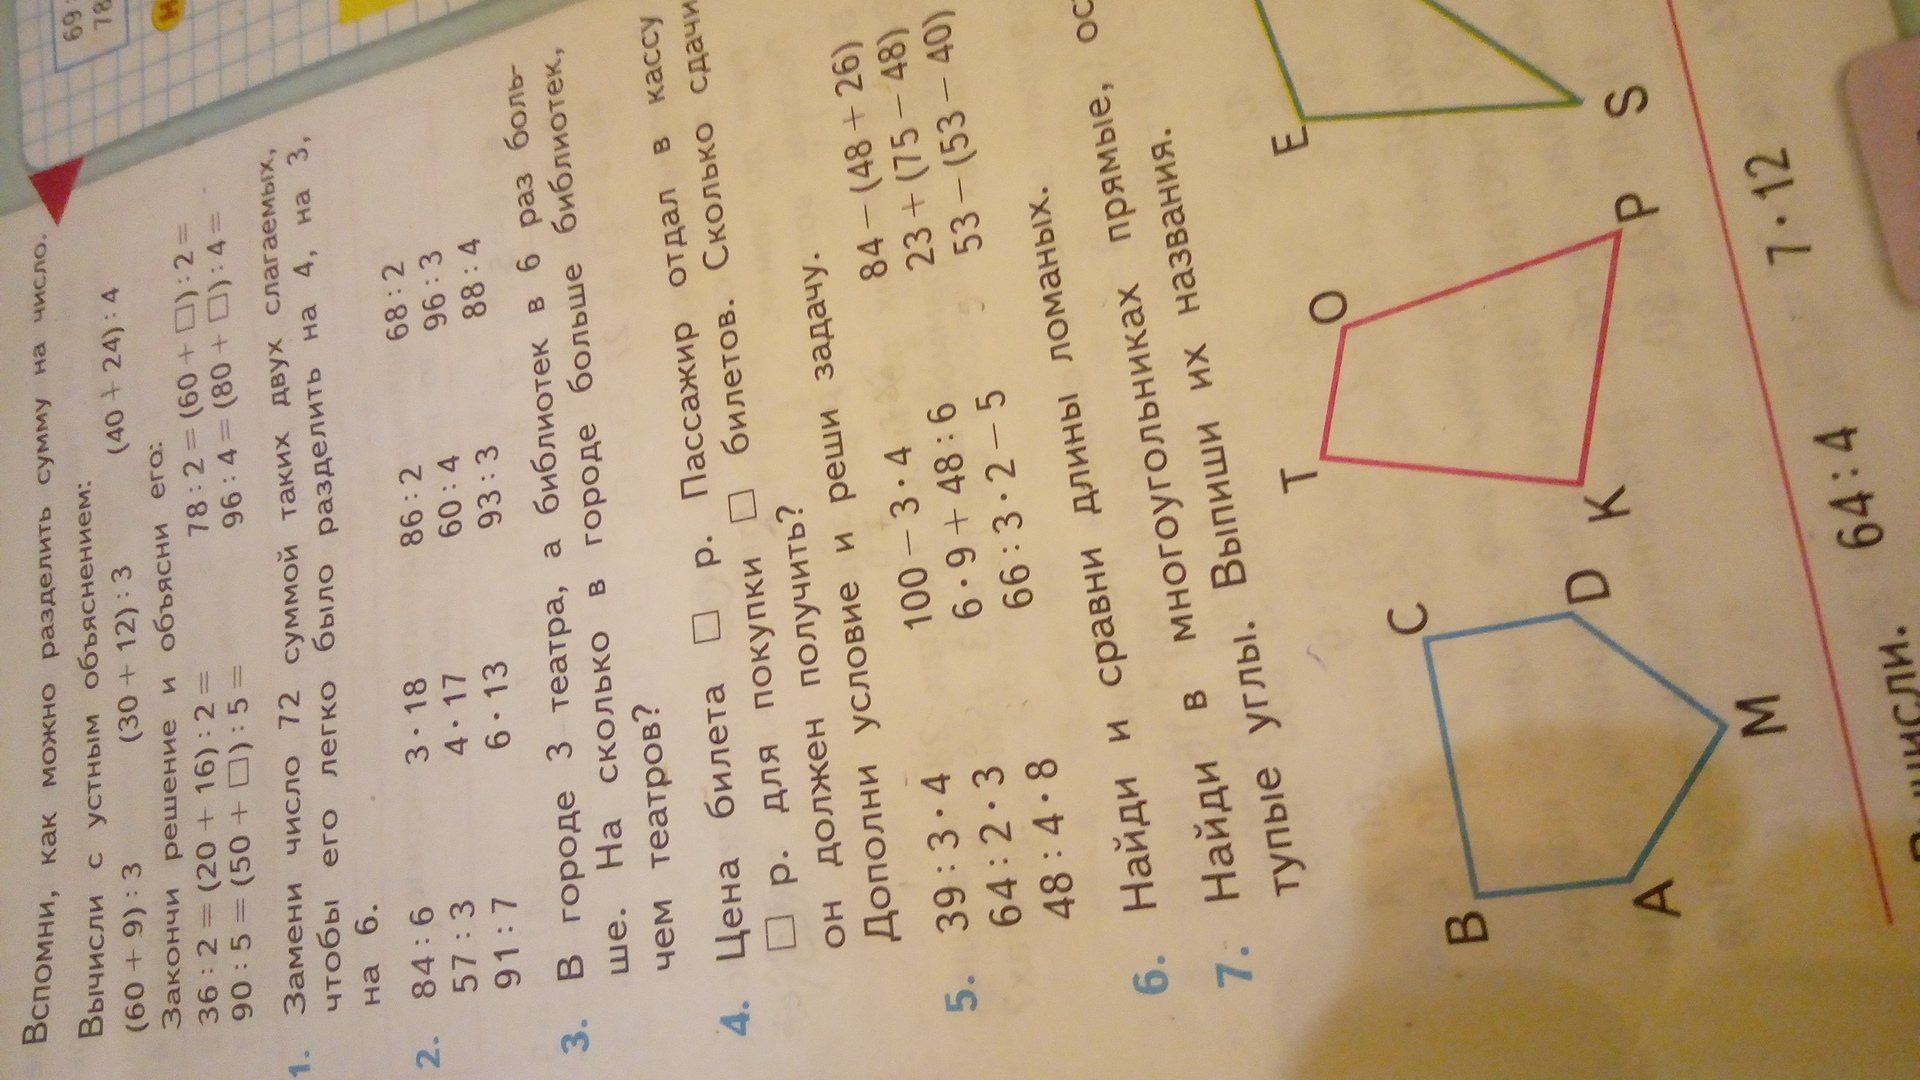 Вспомни, как можно разделить сумму на число.
Вычисли с устным объяснением:
(60 + 9) : 3 (30 + 12) : 3 (40 + 24) : 4
Закончи решение и объясни его:
36 : 2 = (20 + 16) : 2 = 78 : 2 = (60 + □) : 2 =
90 : 5 = (50 + □) : 5 = 96 : 4 = (80 + □) : 4 =
1. Замени число 72 суммой таких двух слагаемых,
чтобы его легко было разделить на 4, на 3,
на 6.
2. 84 : 6 3 · 18 86 : 2 68 : 2
57 : 3 4 · 17 60 : 4 96 : 3
91 : 7 6 · 13 93 : 3 88 : 4
3. В городе 3 театра, а библиотек в 6 раз боль-
ше. На сколько в городе больше библиотек,
чем театров?
4. Цена билета □ р. Пассажир отдал в кассу
□ р. для покупки □ билетов. Сколько сдачи
он должен получить?
Дополни условие и реши задачу.
5. 39 : 3 · 4 100 − 3 · 4 84 − (48 + 26)
64 : 2 · 3 6 · 9 + 48 : 6 23 + (75 − 48)
48 : 4 · 8 66 : 3 · 2 − 5 53 − (53 − 40)
6. Найди и сравни длины ломаных.
7. Найди в многоугольниках прямые,
тупые углы. Выпиши их названия.
B C D M A
T O P K
E S
64 : 4 7 · 12
69
78